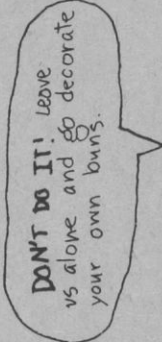 DON'T DO IT! Leave
us alone and go decorate
your own buns.